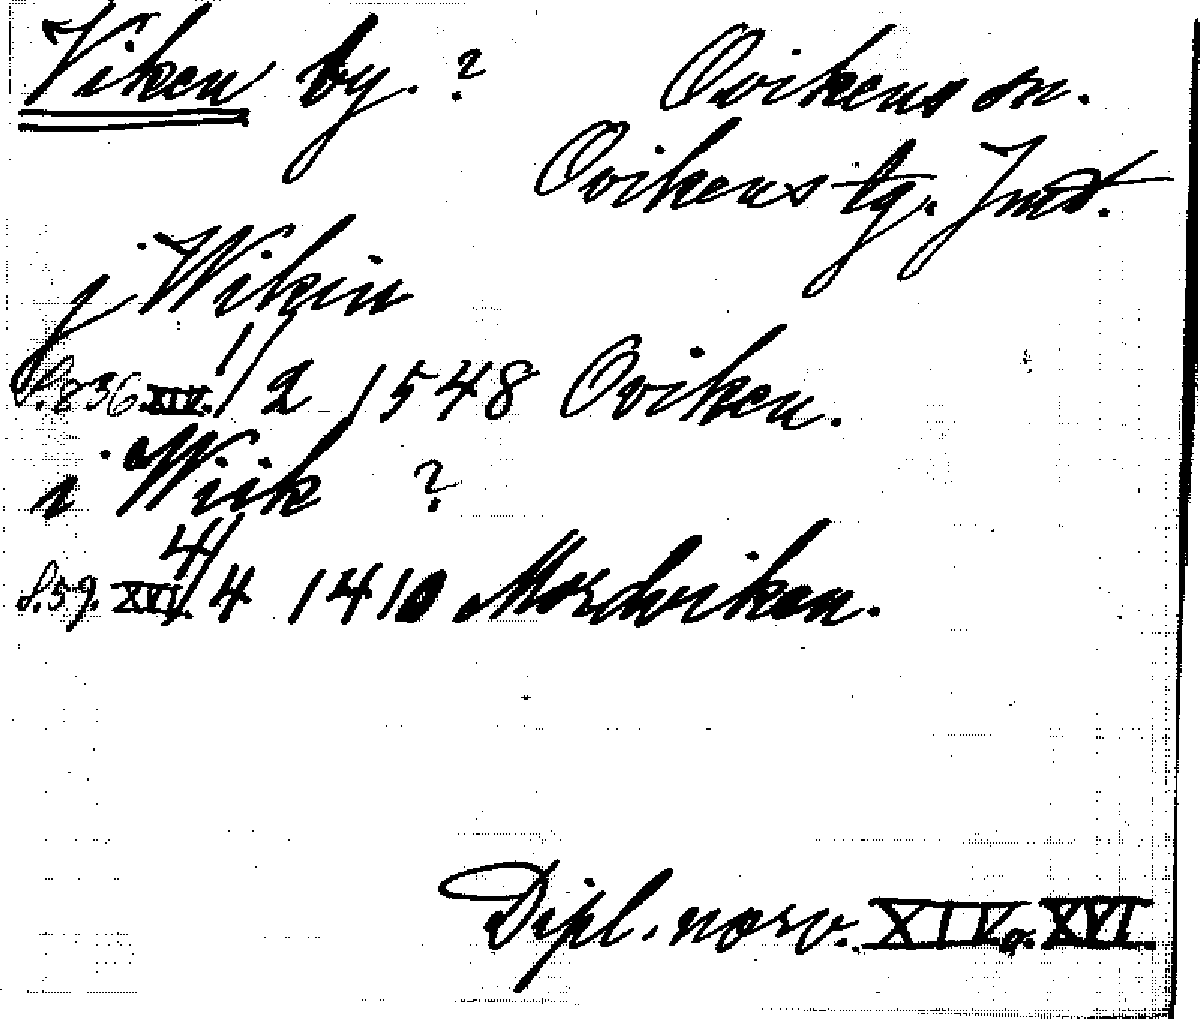 Viken by. ? Ovikens sn.
Ovikens tg. Jmt.
j Wikin
s. 836 XIV. 1/2 1548 Oviken.
i Wiik ?
s. 59. XVI. 4/4 1410 Mordviken.
Dipl. norv. XIV o. XVI.